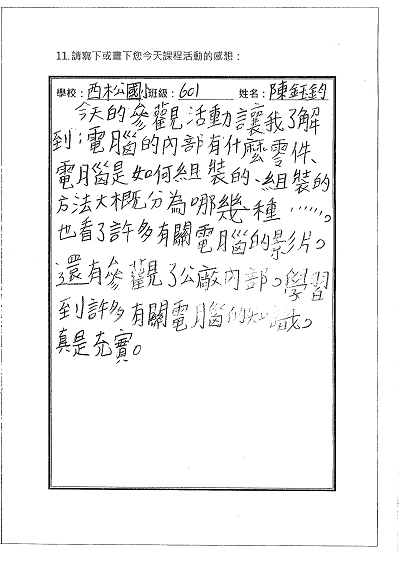 11.請寫下或畫下您今天課程活動的感想：
學校：西松國小班級：601 姓名：陳鈺鈞
今天的參觀活動讓我了解
到：電腦的內部有什麼零件、
電腦是如何組裝的、組裝的
方法大概分為哪幾種……。
也看了許多有關電腦的影片。
還有參觀了公廠內部。學習
到許多有關電腦的知識。
真是充實。